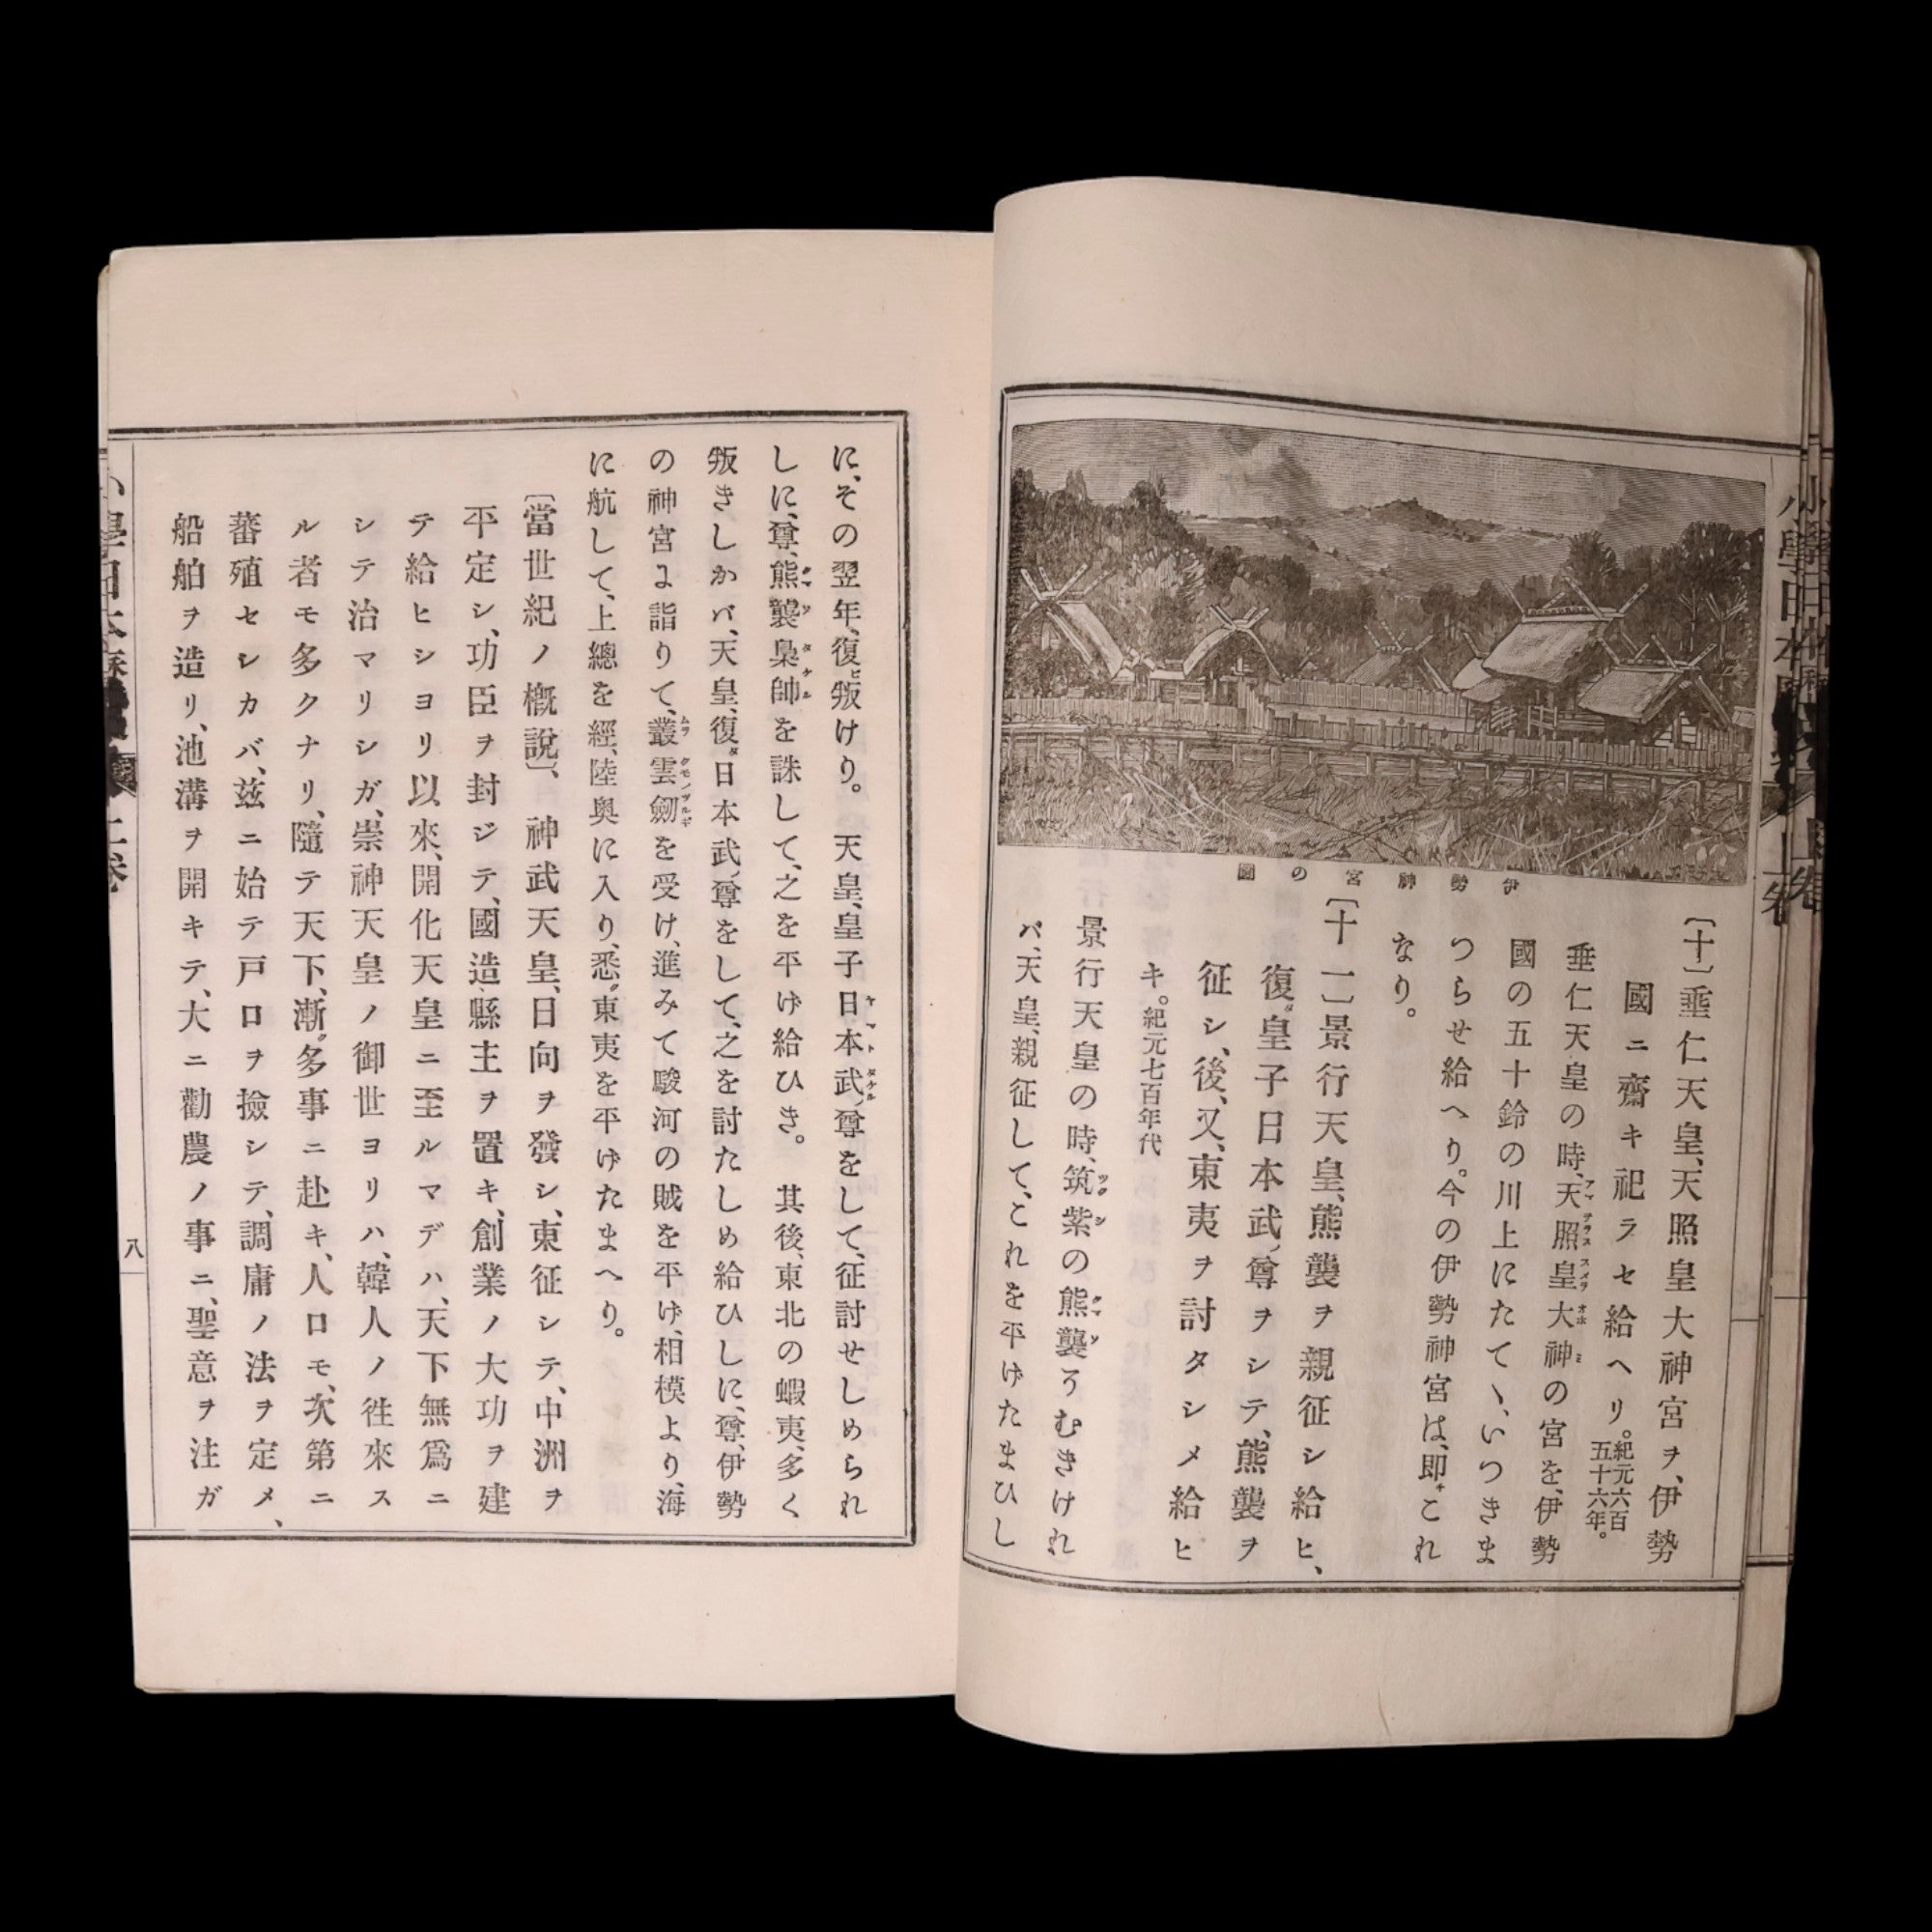 伊勢神宮の圖
〔十〕垂仁天皇、天照皇大神宮ヲ、伊勢
國ニ齋キ祀ラセ給ヘリ。紀元六百五十六年。
垂仁天皇の時、天照皇大神の宮を、伊勢
國の五十鈴の川上にたてゝ、いつきま
つらせ給へり。今の伊勢神宮は、即チこれ
なり。
〔十一〕景行天皇、熊襲ヲ親征シ給ヒ、
復タ皇子日本武ノ尊ヲシテ、熊襲ヲ
征シ、後、又、東夷ヲ討タシメ給ヒ
キ。紀元七百年代
景行天皇の時、筑紫の熊襲そむきけれ
バ、天皇、親征して、これを平げたまひし
に、その翌年、復ヒ叛けり。 天皇、皇子日本武ノ尊をして、征討せしめられ
しに、尊、熊襲梟帥を誅して、之を平げ給ひき。 其後、東北の蝦夷、多く
叛きしかバ、天皇、復タ日本武ノ尊をして、之を討たしめ給ひしに、尊、伊勢
の神宮に詣りて、叢雲劒を受け、進みて駿河の賊を平げ、相模より、海
に航して、上總を經、陸奥に入り、悉ク東夷を平げたまへり。
〔當世紀ノ概說〕、神武天皇、日向ヲ發シ、東征シテ、中洲ヲ
平定シ、功臣ヲ封ジテ、國造、縣主ヲ置キ、創業ノ大功ヲ建
テ給ヒシヨリ以來、開化天皇ニ至ルマデハ、天下無爲ニ
シテ治マリシガ、崇神天皇ノ御世ヨリハ、韓人ノ徃來ス
ル者モ多クナリ、隨テ天下、漸ク多事ニ赴キ、人口モ、次第ニ
蕃殖セシカバ、玆ニ始テ戸口ヲ撿シテ、調庸ノ法ヲ定メ、
船舶ヲ造リ、池溝ヲ開キテ、大ニ勸農ノ事ニ、聖意ヲ注ガ
八